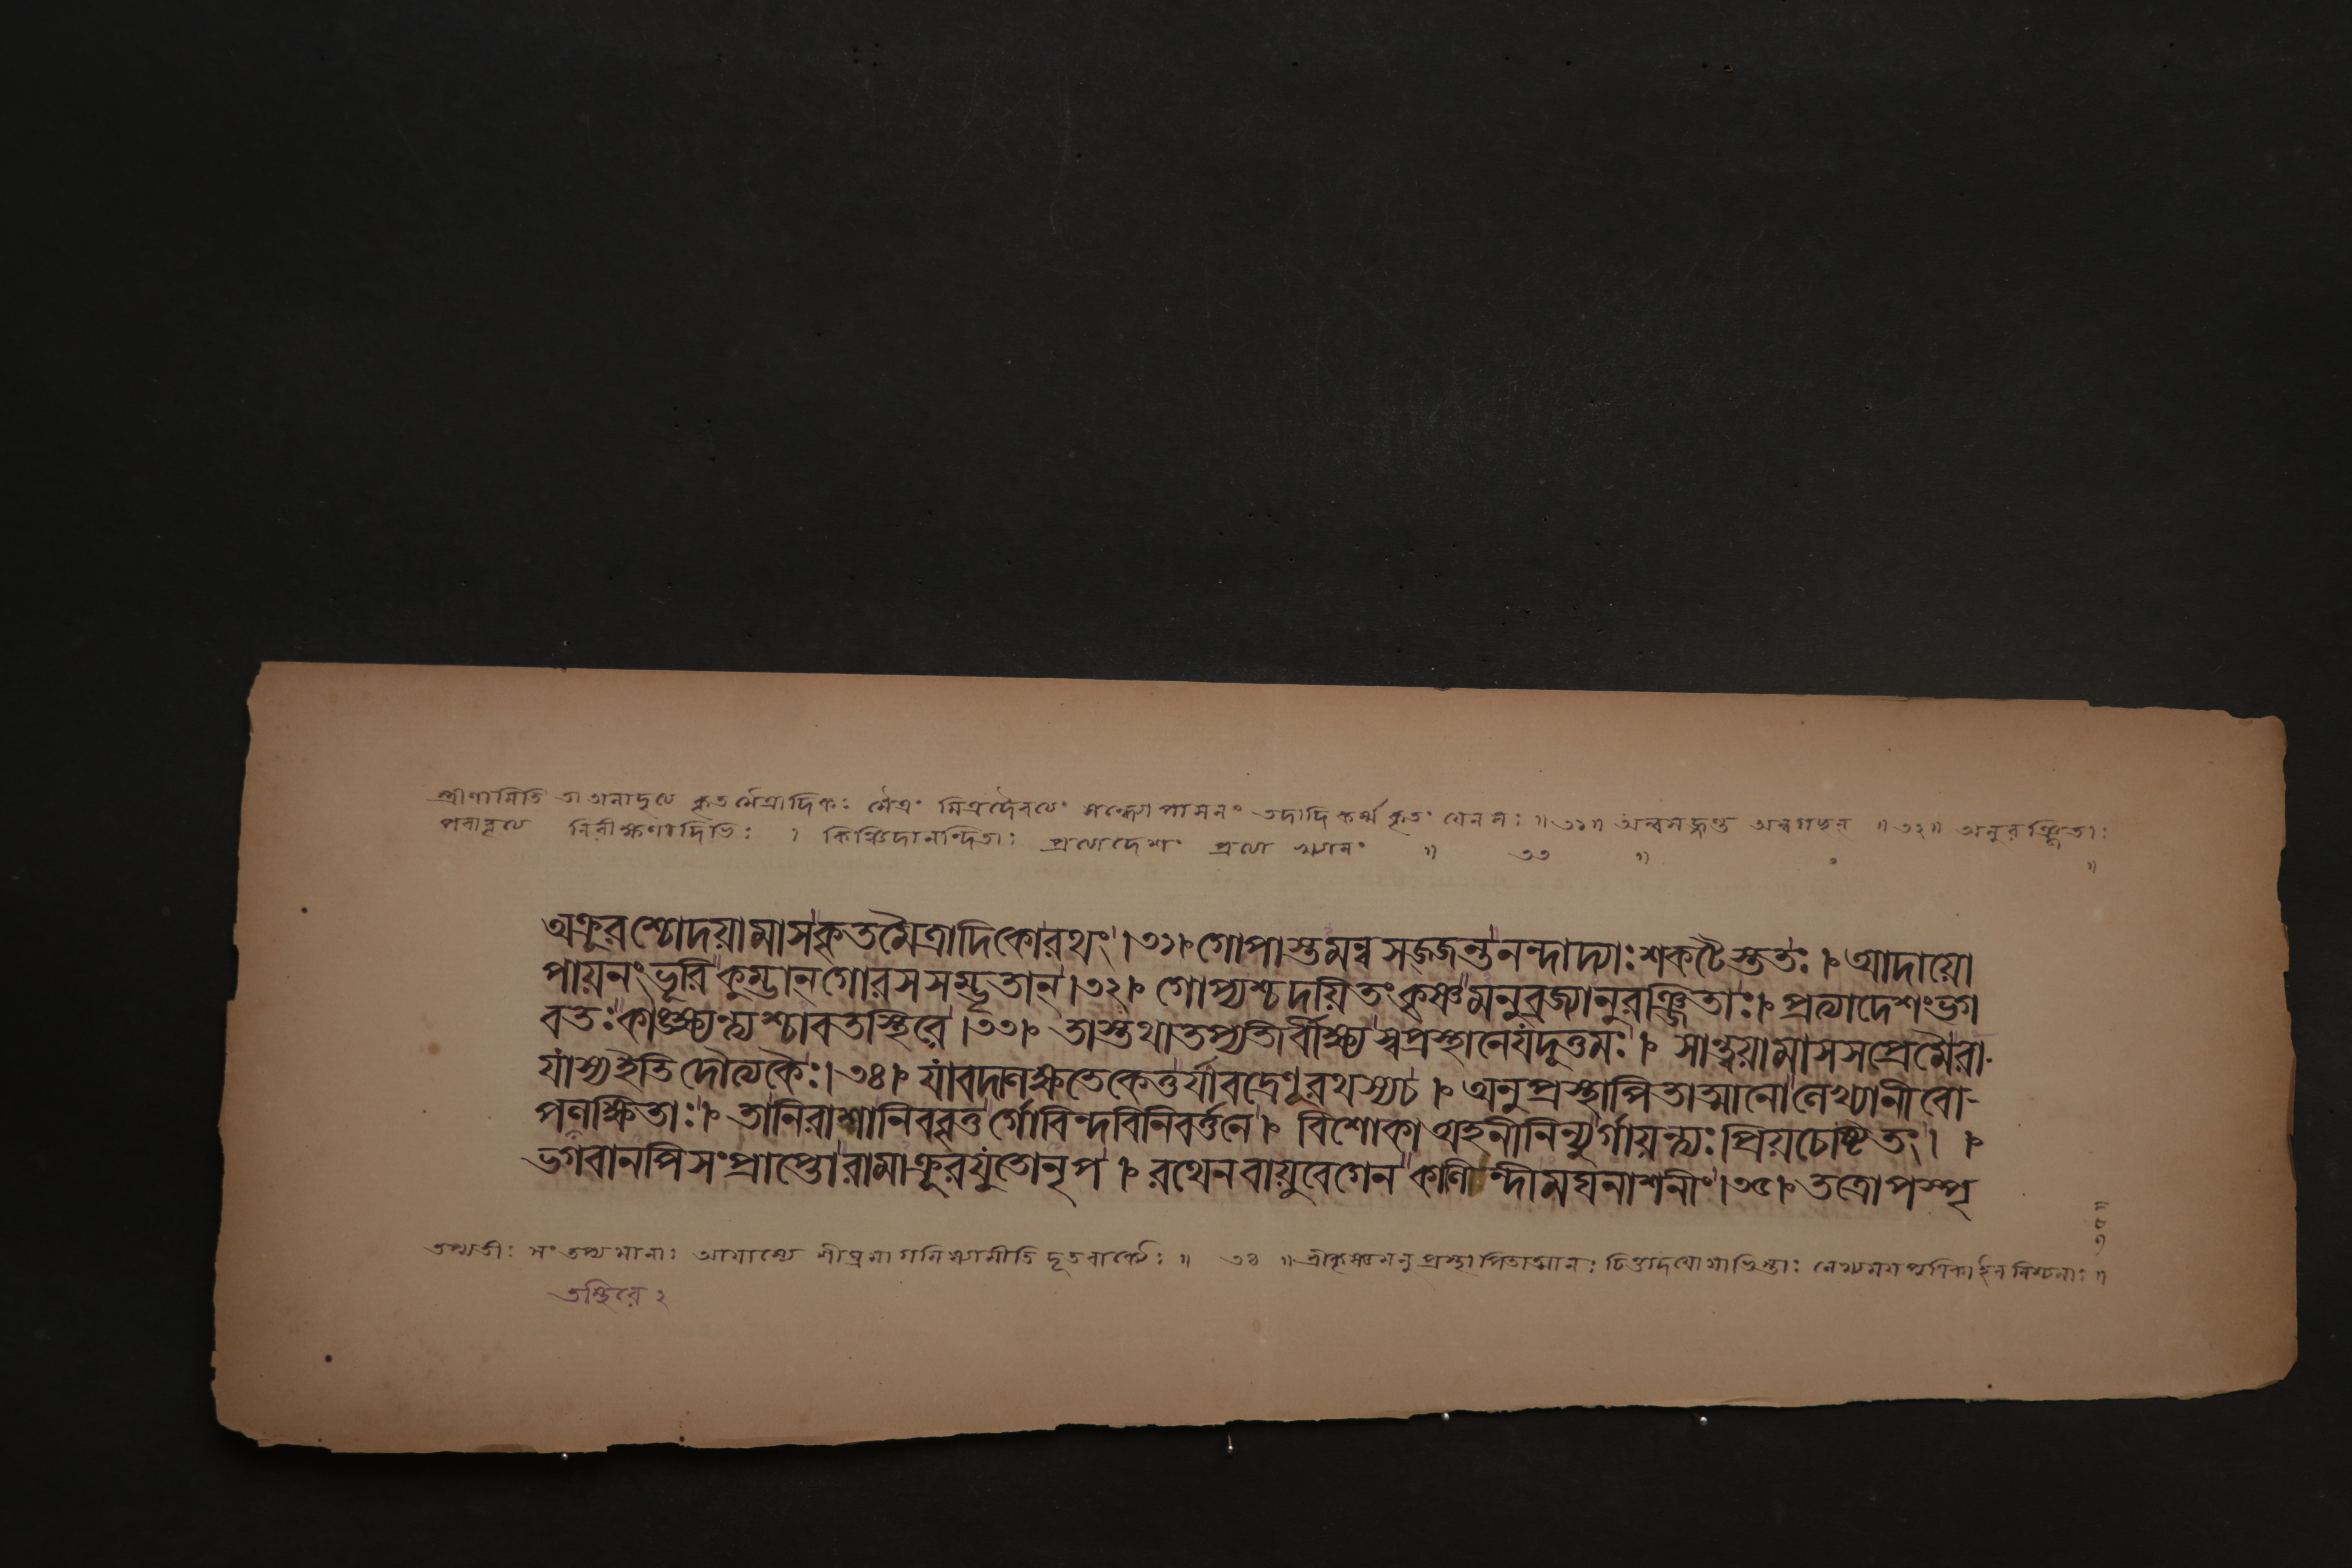 স্ত্রীণামিতি তা অনাদৃত্য কৃতমৈত্রাদিকঃ মৈত্রং মিত্রদৈবত্যং সন্ধ্যোপাসনং তদাদি কর্ম্ম কৃতং যেন সঃ ॥৩১॥ অন্বসজ্জন্ত অন্বগচ্ছন্ ॥৩২॥ অনুরঞ্জিতাঃ
পরাবৃত্য নিরীক্ষণাদিভিঃ । কিঞ্চিদানন্দিতাঃ প্রত্যাদেশং প্রত্যাখ্যানং ॥ ৩৩ ॥
অক্রূরশ্চোদয়ামাসকৃতমৈত্রাদিকোরথং।৩১। গোপাস্তমন্বসজ্জন্তনন্দাদ্যাঃশকটৈস্ততঃ। আদায়ো
পায়নংভূরিকুম্ভান্গোরসসম্ভৃতান্।৩২। গোপ্যশ্চদয়িতংকৃষ্ণমনুব্রজ্যানুরঞ্জিতাঃ। প্রত্যাদেশংভগ
বতঃকাঙ্ক্ষ্যন্ত্যশ্চাবতস্থিরে।৩৩। তাস্তথাতপ্যতীর্বীক্ষ্যস্বপ্রস্থানেযদূত্তমঃ। সান্ত্বয়ামাসসপ্রেমৈরা-
যাস্যইতিদৌত্যকৈঃ।৩৪। যাবদালক্ষতেকেতুর্যাবদ্রেণূরথস্যচ। অনুপ্রস্থাপিতাত্মানোলেখ্যানীবো-
পলক্ষিতাঃ। তানিরাশানিববৃতুর্গোবিন্দবিনিবর্ত্তনে। বিশোকাঅহনীনিন্যুর্গায়ন্ত্যঃপ্রিয়চেষ্টিতং।।
ভগবানপিসংপ্রাপ্তোরামাক্রূরযুতোনৃপ। রথেনবায়ুবেগেনকালিন্দীমঘনাশনীং।৩৫। তত্রোপস্পৃ
তপ্যতীঃ সংতপ্যমানাঃ আযাস্যে শীঘ্রমাগমিষ্যামীতি দূতবাক্যৈঃ ॥ ৩৪ ॥ শ্রীকৃষ্ণমনুপ্রস্থাপিতাত্মানঃ
তস্থিরে ২